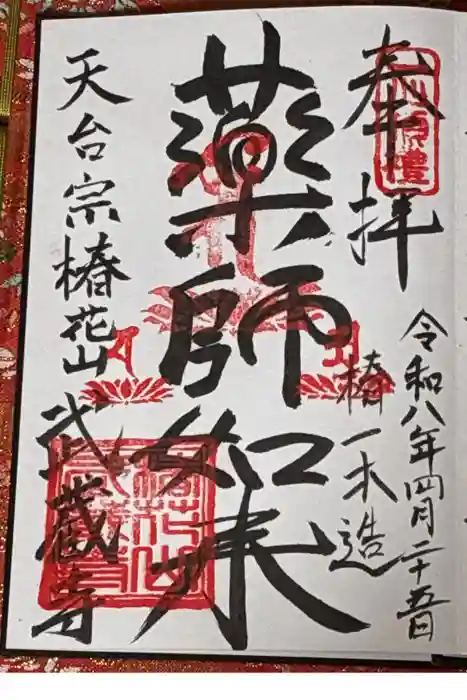 奉拝
令和八年四月二十五日
椿一木造
薬師如来
天台宗椿花山武蔵寺